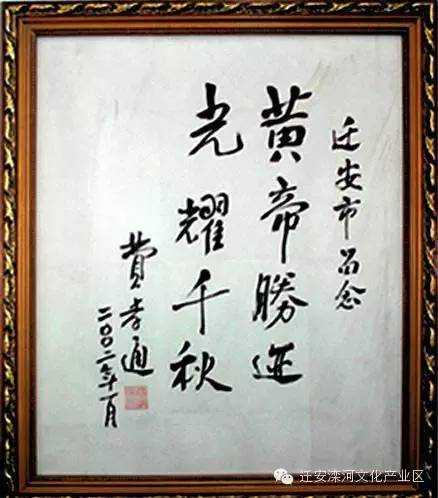 迁安市留念
黄帝勝迹
光耀千秋
費孝通
二〇〇二年一月
迁安滦河文化产业区